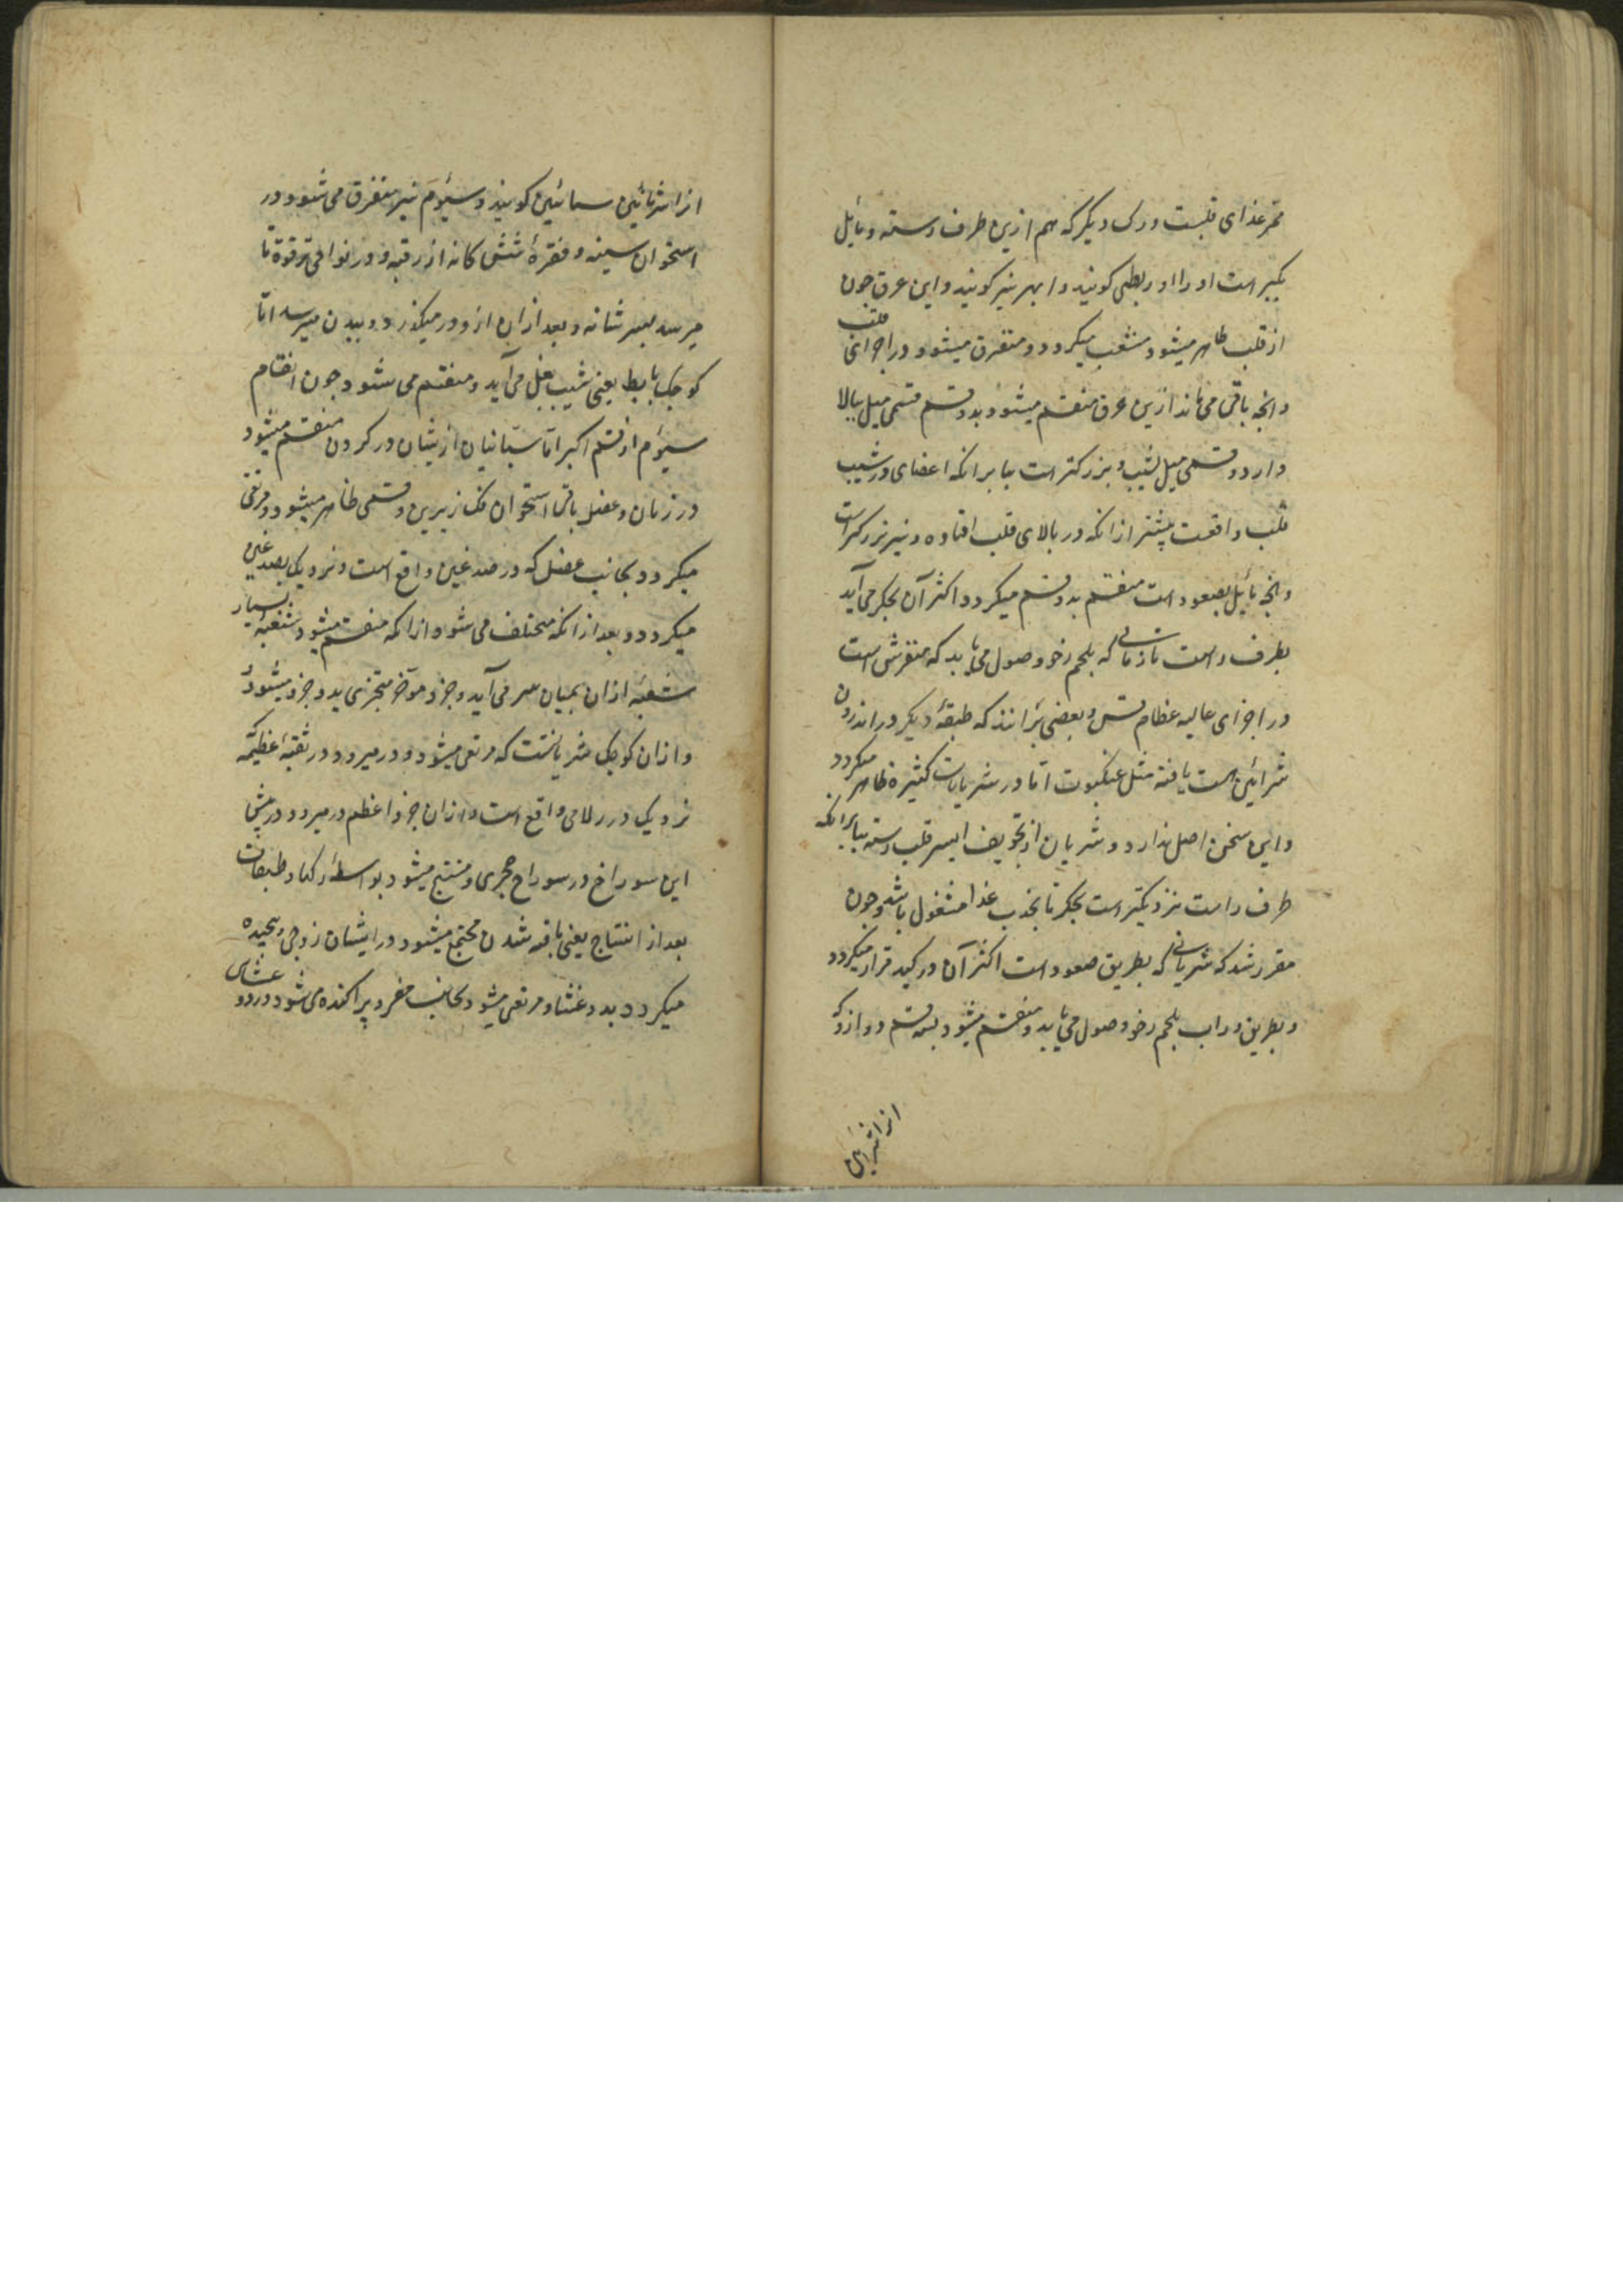 ممر غذای قلبست و رک دیکر که هم ازین طرف رسته و مایل
بکبر است او را اوربطی کویند و ابهر نیز کویند و این عرق چون
از قلب ظاهر میشود منشعب میکردد و متفرق میشود در اجزای قلب
و انچه باقی می ماند ازین عرق منقسم میشود بدو قسم قسمی میل ببالا
دارد و قسمی میل بشیب و بزرکتر است بنابر انکه اعضای در شیب
قلب واقعست بیشتر از انکه در بالای قلب افتاده و نیز بزرکتر است
و انچه مایل بصعود است منقسم بدو قسم میکردد اکثر آن بجکر می آید
بطرف راست تا زمانی که بلحم رخو وصول می یابد که منفرش است
در اجزای عالیه عظام قس و بعضی برانند که طبقهٔ دیکر در اندرون
شرائین است یافته مثل عنکبوت اما در شریانات کثیره ظاهر میکردد
و این سخن اصل ندارد و شریان از تجویف ایسر قلب رسته بنابر انکه
طرف راست نزدیکتر است بجکر تا بجذب غذا مشغول باشد و چون
مقرر شد که شریانی که بطریق صعود است اکثر آن در کبد قرار میکردد
و بطریق وراب بلحم رخو وصول می یابد و منقسم میشود بسه قسم دو از و که
از اشرایین
از اشرائین سباتیین کویند و سیؤم نیز متفرق می شود در
استخوان سینه و فقرهٔ شش کانه از رقبه و در نواحی ترقوة تا
میرسد بسر شانه و بعد از ان ازو در میکذرد و ببدن میرسد اما
کوچک بابط یعنی شیب بغل می آید و منقسم می شود چون انقسام
سیؤم از قسم اکبر اما سباتیان ازیشان در کردن منقسم میشود
در زبان و عضل باقی استخوان فک زیرین و قسمی ظاهر میشود و مرتقی
میکردد بجانب عضل که در صدغین واقع است و نزدیک بصدغین
میکردد و بعد از انکه مختلف می شود از انکه منقسم میشود شعبهٔ بسیار
شعبه از ان بمیان سر می آید و جزو موخر متجزی بدو جزو میشود
و از ان کوچک شریانست که مرتقی میشود و در میرود در ثقبهٔ عظیمه
نزدیک درز لامی واقع است و از ان جزو اعظم در میرود در پیش
این سوراخ در سوراخ حجری و منتسج میشود بواسطهٔ رکها و طبقات
بعد از انتساج یعنی بافه شدن مجتمع میشود در ایشان زوجی و پیچیده
میکردد بدو غشا و مرتقی میشود بجانب مغز و پراکنده می شود در دو غشای